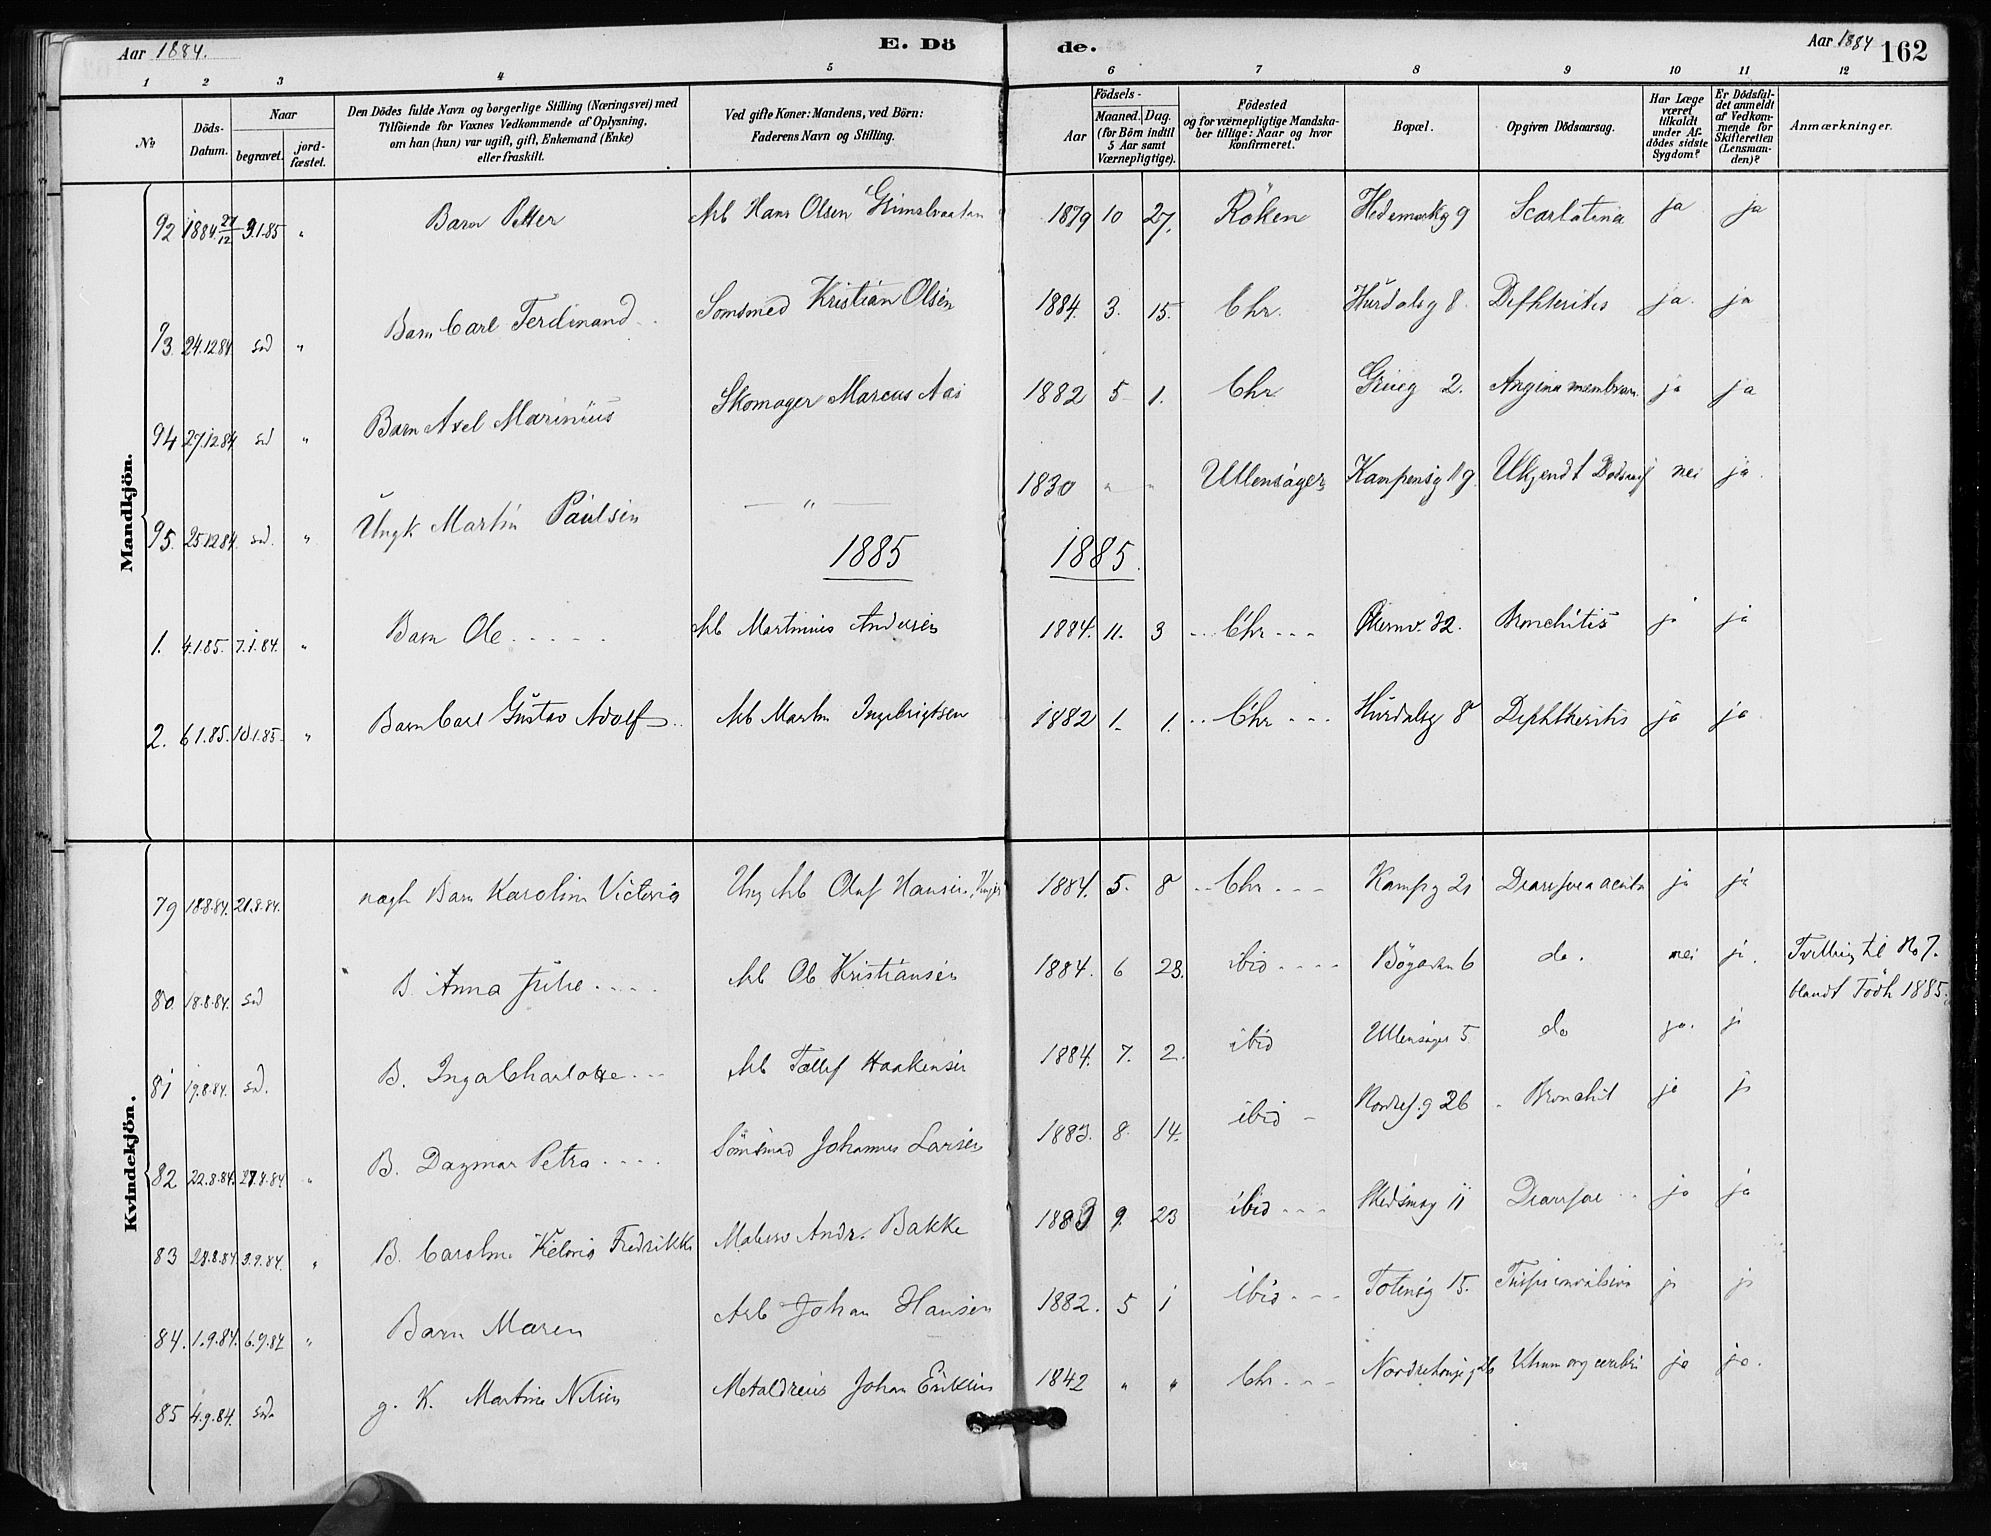 Aar 1884.
E. Dö
de.
Aar 1884
162
1 2 3 4 5 6 7 8 9 10 11 12
No
Döds-Datum.
Naar
begravet.
jord-fæstet.
Den Dödes fulde Navn og borgerlige Stilling (Næringsvei) med
Tilföiende for Voxnes Vedkommende af Oplysning,
om han (hun) var ugift, gift, Enkemand (Enke)
eller fraskilt.
Ved gifte Koner: Mandens, ved Börn:
Faderens Navn og Stilling.
Födsels-
Aar
Maaned. Dag.
(for Börn indtil
5 Aar samt
Værnepligtige).
Födested
og for værnepligtige Mandska-
ber tillige: Naar og hvor
konfirmeret.
Bopæl.
Opgiven Dödsaarsag.
Har Læge
været
tilkaldt
under Af-
dödes sidste
Sygdom?
Er Dödsfal-
det anmeldt
af Vedkom-
mende for
Skifteretten
(Lensman-
den)?
Anmærkninger.
Mandkjön.
92 1884 27/12 3.1.85 " Barn Petter Arb Hans Olsen 1879 10 27. Röken Hedemarkg 9 Scarlatina ja ja
93. 24.12 84. sd " Barn Carl Ferdinand Somsmed Kristian Olsen 1884. 3. 15. Chr. Hurdalsg 8. Difhteritis ja. ja
94 27.12 84 sd " Barn Axel Marinius Skomager Marcus Aas 1882 5 1. Chr. Grueg 2. Angina membran. ja ja
95. 25.12 84. sd. " Ungk Martin Paulsen — " — 1830 " " Ullensager Kampensg 19. Ukjendt nei ja.
1885 1885.
1. 4.1.85. 7.1.84. " Barn Ole Arb Martinius Andersen 1884. 11. 3 Chr Økernv. 32. Bronchitis ja ja
2. 6 1.85. 10.1.85. " Barn Carl Gustav Adolf Arb Martin Ingebrigtsen 1882 1. 1. Chr Hurdalsg 8 Diphtheritis ja ja
Kvindekjön.
79 18.8.84. 21.8.84. uægte Barn Karoline Victoria Ung Arb Oluf Hansen, 1884. 5. 8 Chr Kampg 21 Diarrhoea acuta ja ja
80. 18.8.84. sd B. Anna Julie Arb Ole Kristiansen 1884. 6 23. ibid Bögaden 6 do. nei ja. Tvilling til No 7.
blandt Födte 1885.
81 19.8.84. sd. B. Inga Charlotte Arb Tollef Haakensen 1884. 7. 2. ibid Ullensager 5 do ja. ja
82 22.8.84. 27.8.84 " B. Dagmar Petra Sömsmed Johannes Larsen 1883. 8. 14. ibid Nordref. g 26 Bronchit ja ja
83 28.8.84 3.9.84. " B. Caroline Victoria Fredrikke Malersv Andr. Bakke 1883 9. 23 ibid Hedemg 11 Diarrhoe ja ja
84. 1.9.84. 6.9.84 " Barn Maren Arb Johan Hansen 1882. 5 1 ibid Totensg 15. Tussis convulsiva ja ja
85 4.9.84. sd. g. K. Martine Nilsen Metaldreier Johan Eriksen 1842 " " Chr. Nordrehougsg 26 ja ja.